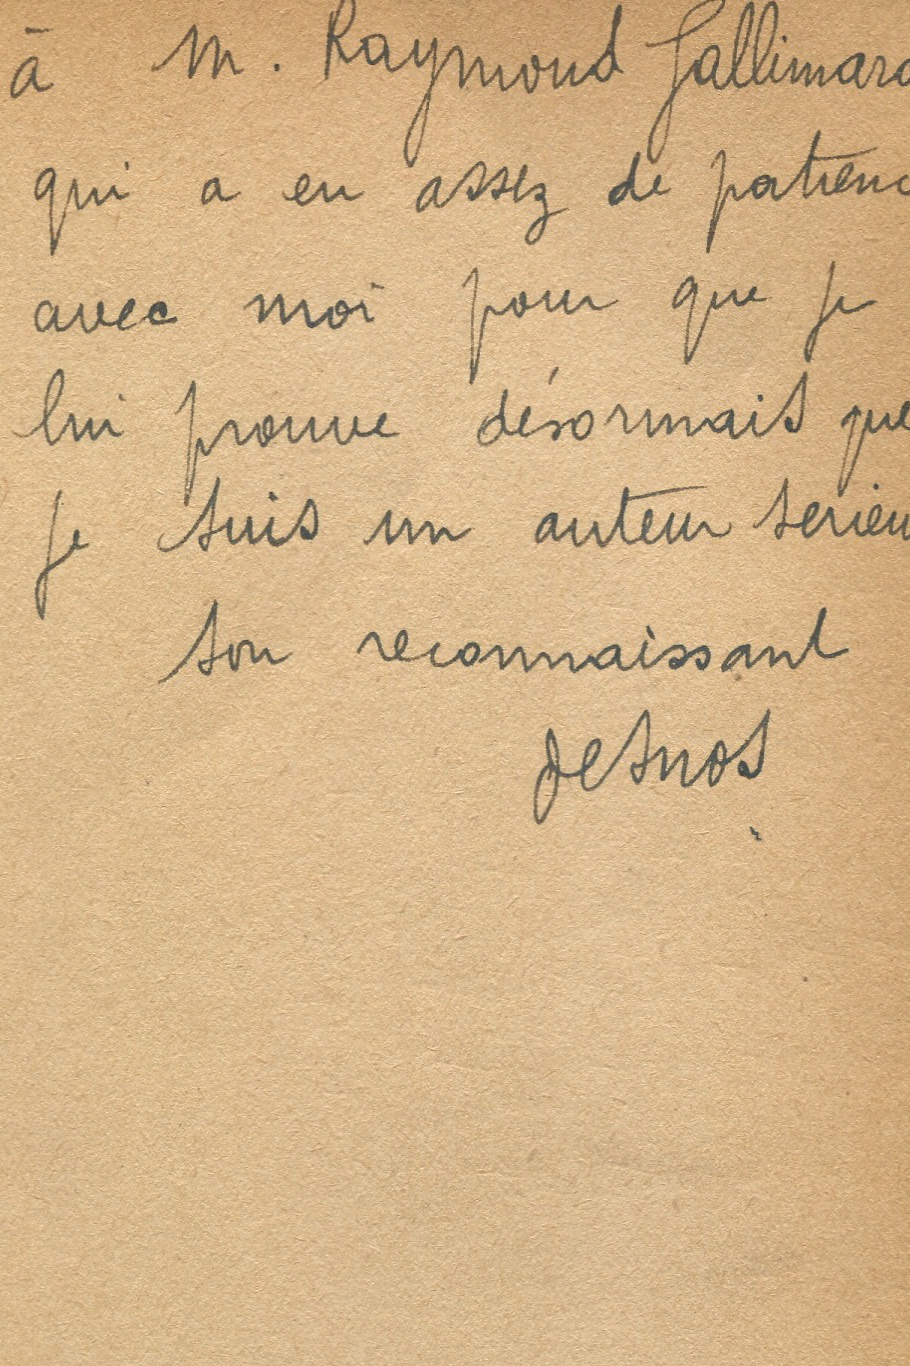 à M. Raymond Gallimard
qui a eu assez de patienc
avec moi pour que je
lui prouve désormais que
je suis un auteur serieu
son reconnaissant
Desnos